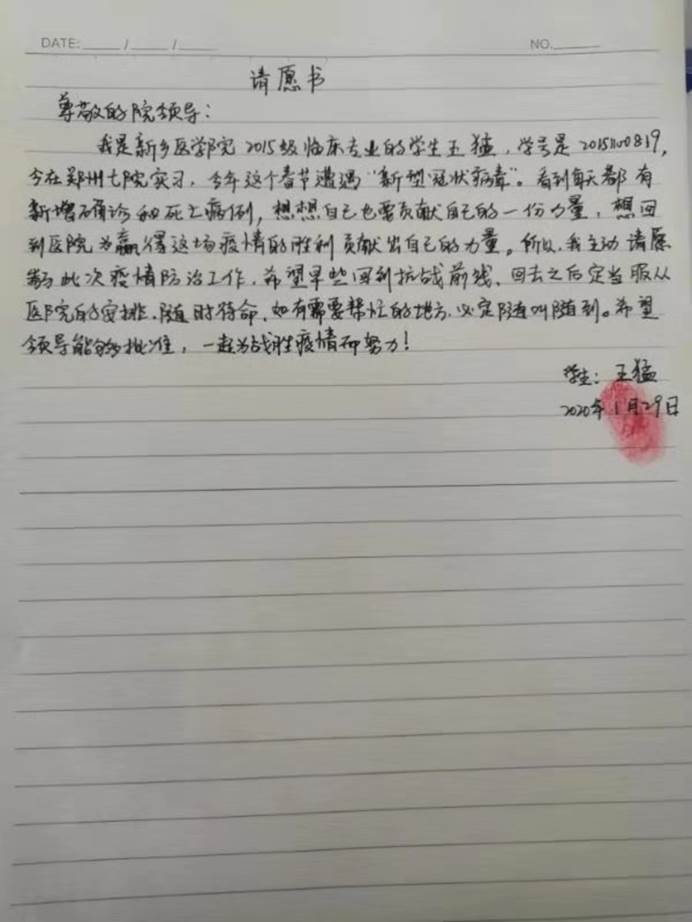 DATE: ____ / ____ / ____ NO. ____
请愿书
尊敬的院领导：
我是新乡医学院2015级临床专业的学生王猛，学号是20151100819，
今在郑州七院实习，今年这个春节遭遇“新型冠状病毒”。看到每天都有
新增确诊和死亡病例，想想自己也要贡献自己的一份力量，想回
到医院为赢得这场疫情的胜利贡献出自己的力量。所以，我主动请愿
参与此次疫情防治工作，希望早些回到抗战前线，回去之后定当服从
医院的安排、随时待命，如有需要帮忙的地方，必定随叫随到。希望
领导能够批准，一起为战胜疫情而努力！
学生：王猛
2020年1月29日